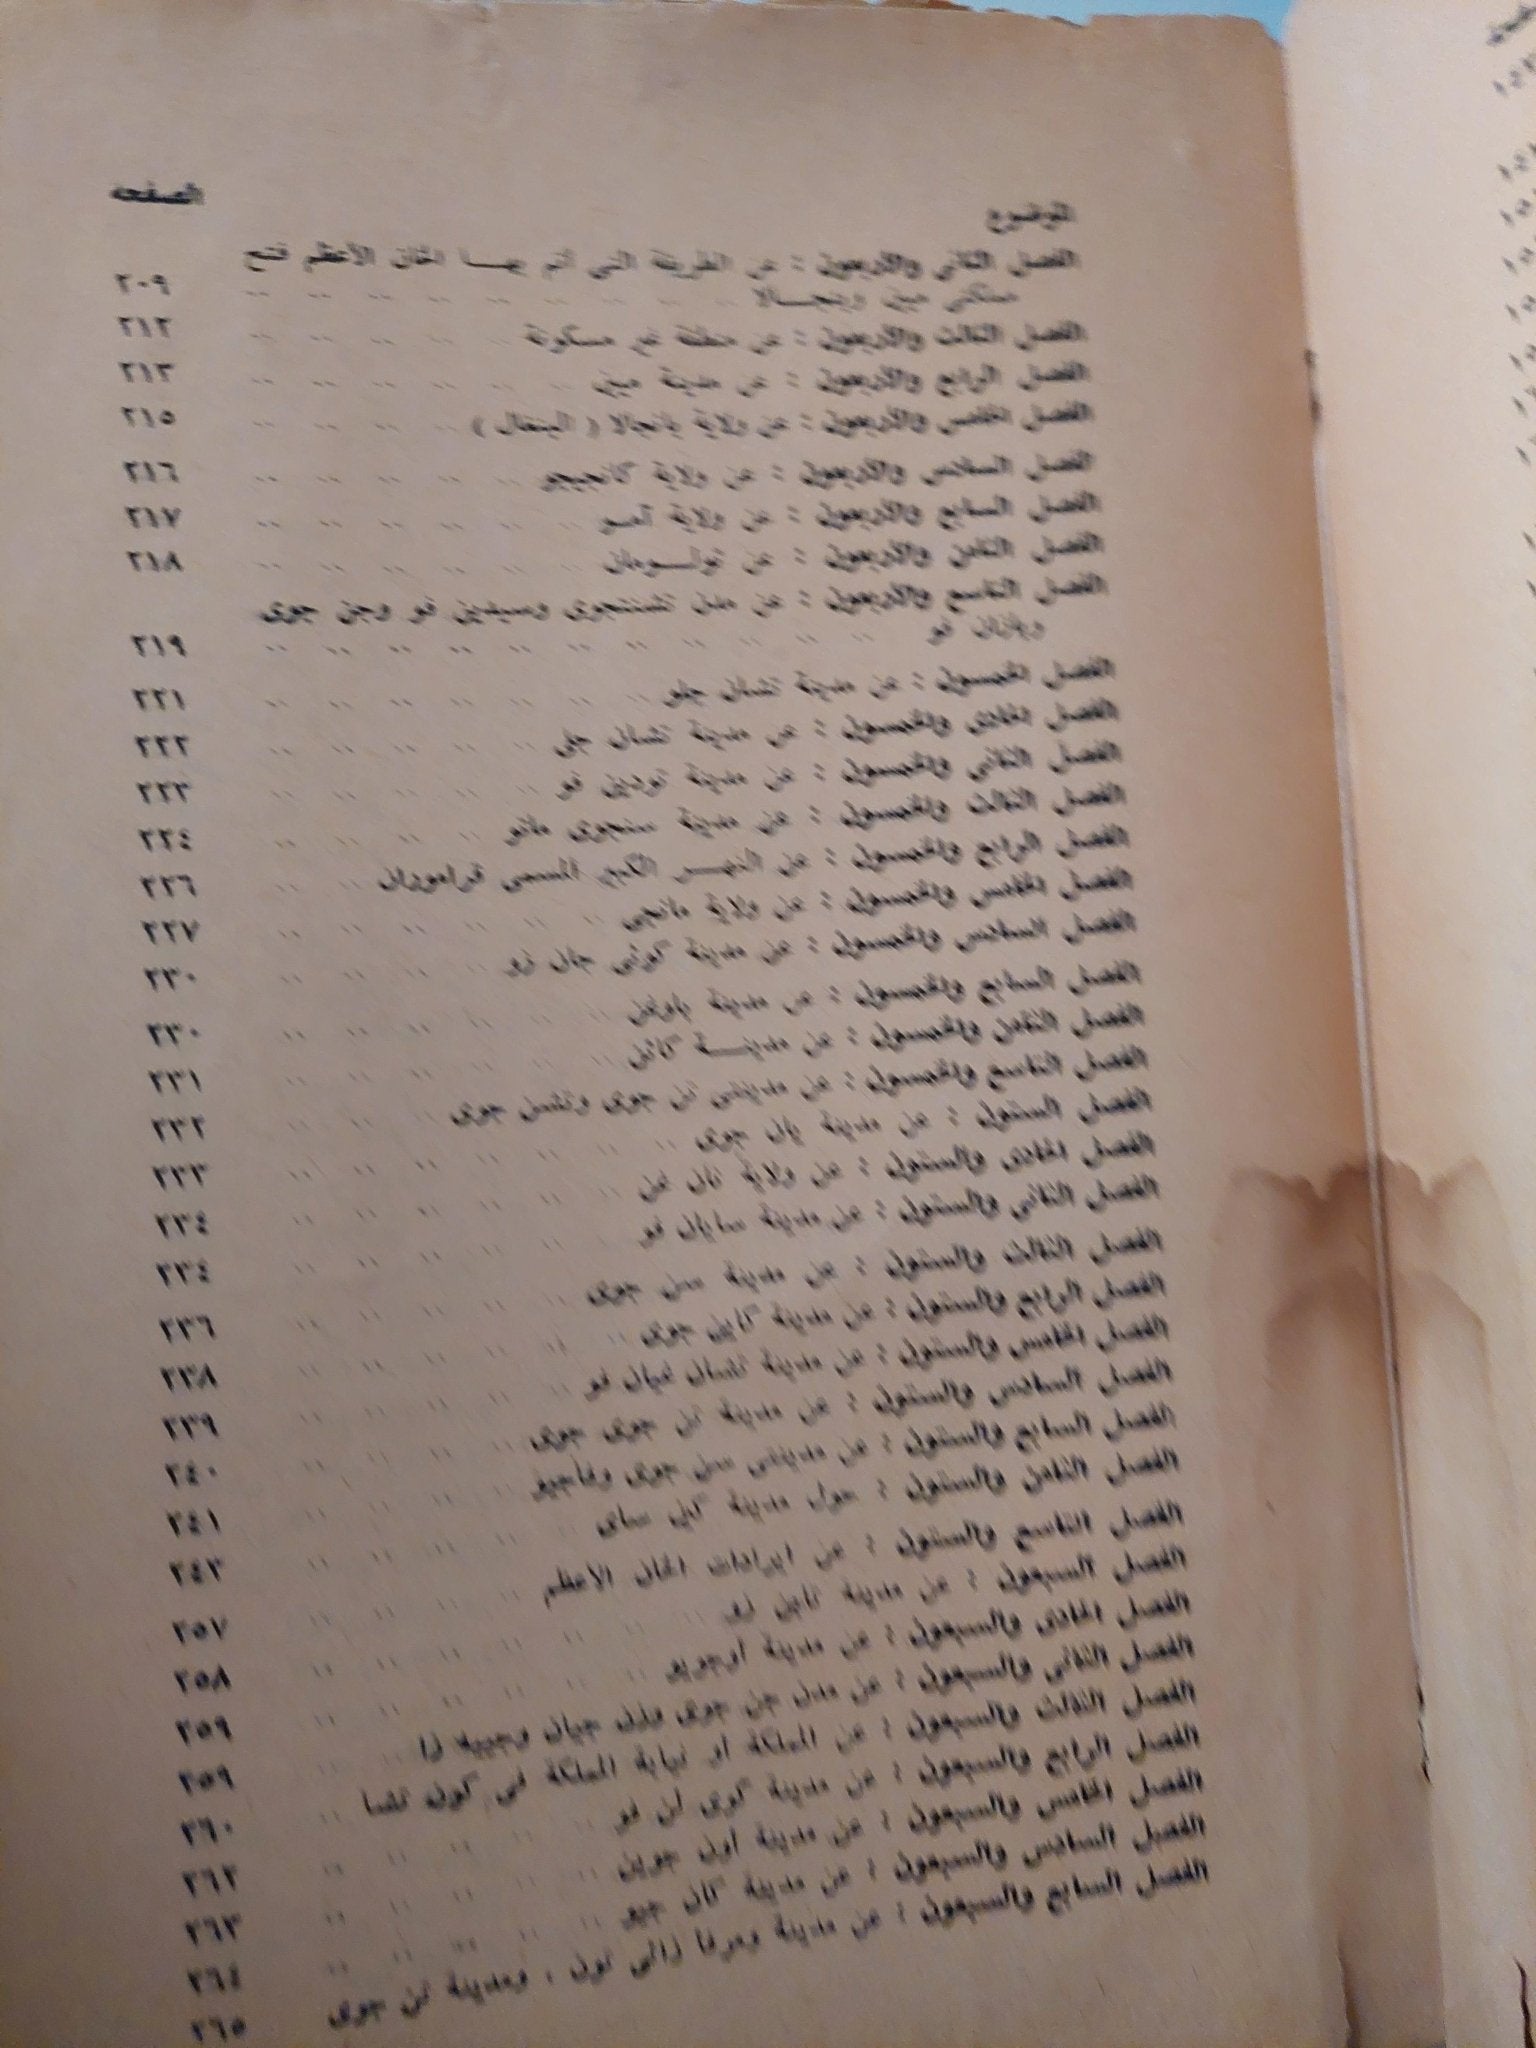 الموضوع الصفحة
الفصل الثانى والأربعون : عن الطريقة التى أتم بهـــا الخان الأعظم فتح
مملكتى ميين وبنجـــالا ٢٠٩
الفصل الثالث والأربعون : عن منطقة غير مسكونة ٢١٢
الفصل الرابع والأربعون : عن مدينة ميين ٢١٣
الفصل الخامس والأربعون : عن ولاية بانجالا ( البنغال ) ٢١٥
الفصل السادس والأربعون : عن ولاية كانجيجو ٢١٦
الفصل السابع والأربعون : عن ولاية آمـو ٢١٧
الفصل الثامن والأربعون : عن تولـــومان ٢١٨
الفصل التاسع والأربعون : عن مدن تشنتجوى وسيدين فو وجن جوى
وبازان فو ٢١٩
الفصل الخمسون : عن مدينة تشان جلو ٢٢١
الفصل الحادى والخمسون : عن مدينة تشان جلى ٢٢٢
الفصل الثانى والخمسون : عن مدينة تودين فو ٢٢٣
الفصل الثالث والخمسون : عن مدينة سنجوى ماتو ٢٢٤
الفصل الرابع والخمسون : عن النهــر الكبير المسمى قراموران ٢٢٦
الفصل الخامس والخمسون : عن ولاية مانجى ٢٢٧
الفصل السادس والخمسون : عن مدينة كوئى جان زو ٢٣٠
الفصل السابع والخمسون : عن مدينة باوغن ٢٣٠
الفصل الثامن والخمسون : عن مدينـــة كائن ٢٣١
الفصل التاسع والخمسون : عن مدينتى تن جوى وتشن جوى ٢٣٢
الفصل الستون : عن مدينة يان جوى ٢٣٣
الفصل الحادى والستون : عن ولاية نان غن ٢٣٤
الفصل الثانى والستون : عن مدينة سايان فو ٢٣٤
الفصل الثالث والستون : عن مدينة سن جوى ٢٣٦
الفصل الرابع والستون : عن مدينة كاين جوى ٢٣٨
الفصل الخامس والستون : عن مدينة تشان غيان فو ٢٣٩
الفصل السادس والستون : عن مدينة تن جوى جوى ٢٤٠
الفصل السابع والستون : عن مدينتى سن جوى وفاجيو ٢٤١
الفصل الثامن والستون : حول مدينة كين ساى ٢٤٣
الفصل التاسع والستون : عن ايرادات الخان الأعظم ٢٥٧
الفصل السبعون : عن مدينة تابن زو ٢٥٨
الفصل الحادى والسبعون : عن مدينة أوجويو ٢٥٩
الفصل الثانى والسبعون : عن مدن جن جوى وزن جيان وجييه زا ٢٥٩
الفصل الثالث والسبعون : عن المملكة أو نيابة المملكة فى كون تشا ٢٦٠
الفصل الرابع والسبعون : عن مدينة كوى لن فو ٢٦٢
الفصل الخامس والسبعون : عن مدينة أون جوين ٢٦٣
الفصل السادس والسبعون : عن مدينة كان جيو ٢٦٤
الفصل السابع والسبعون : عن مدينة ومرفأ زائى تون ، ومدينة تن جوى ٢٦٥